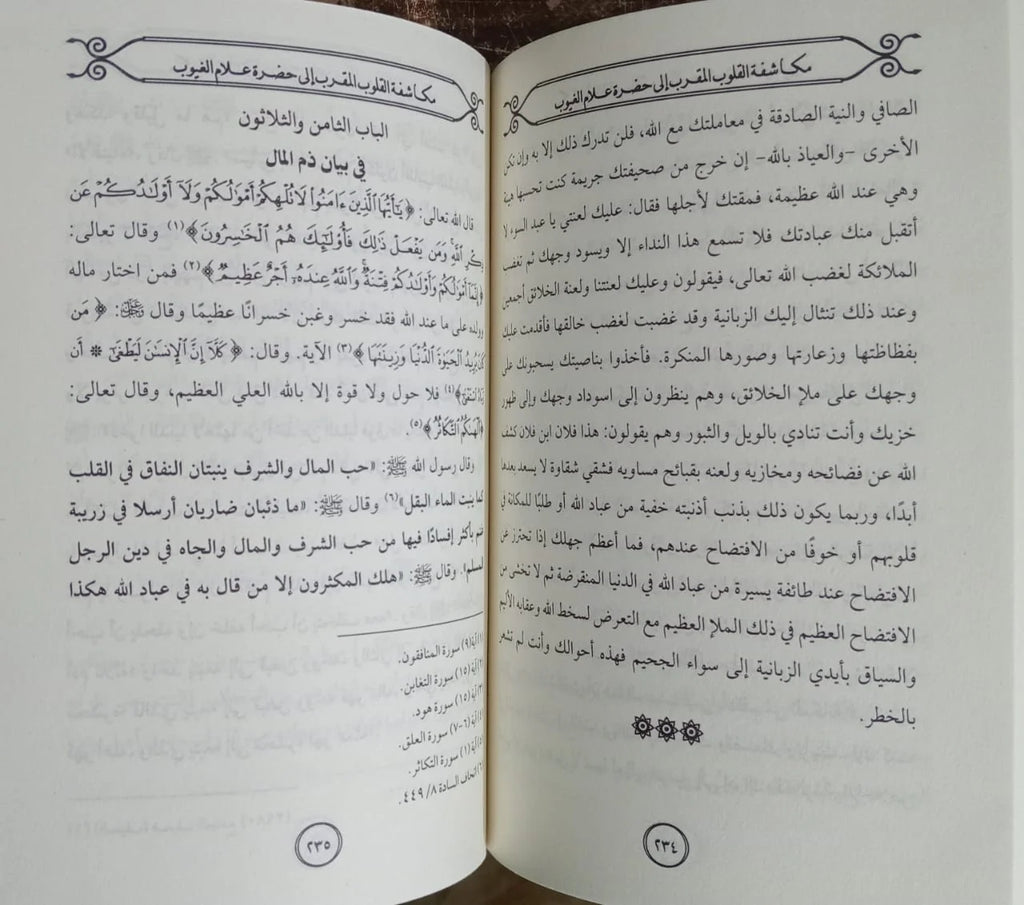 مكاشفة القلوب المقرب إلى حضرة علام الغيوب
الصافي والنية الصادقة في معاملتك مع الله، فلن تدرك ذلك إلا به وإن تكن
الأخرى -والعياذ بالله- إن خرج من صحيفتك جريمة كنت تحسبها هينة
وهي عند الله عظيمة، فمقتك لأجلها فقال: عليك لعنتي يا عبد السوء لا
أتقبل منك عبادتك فلا تسمع هذا النداء إلا ويسود وجهك ثم تغضب
الملائكة لغضب الله تعالى، فيقولون وعليك لعنتنا ولعنة الخلائق أجمعين
وعند ذلك تنثال إليك الزبانية وقد غضبت لغضب خالقها فأقدمت عليك
بفظاظتها وزعارتها وصورها المنكرة. فأخذوا بناصيتك يسحبونك على
وجهك على ملإ الخلائق، وهم ينظرون إلى اسوداد وجهك وإلى ظهور
خزيك وأنت تنادي بالويل والثبور وهم يقولون: هذا فلان ابن فلان كشف
الله عن فضائحه ومخازيه ولعنه بقبائح مساويه فشقي شقاوة لا يسعد بعدها
أبدًا، وربما يكون ذلك بذنب أذنبته خفية من عباد الله أو طلبًا للمكانة في
قلوبهم أو خوفًا من الافتضاح عندهم، فما أعظم جهلك إذا تحترز عن
الافتضاح عند طائفة يسيرة من عباد الله في الدنيا المنقرضة ثم لا تخشى من
الافتضاح العظيم في ذلك الملإ العظيم مع التعرض لسخط الله وعقابه الأليم
والسياق بأيدي الزبانية إلى سواء الجحيم فهذه أحوالك وأنت لم تشعر
بالخطر.
٢٣٤
مكاشفة القلوب المقرب إلى حضرة علام الغيوب
الباب الثامن والثلاثون
في بيان ذم المال
قال الله تعالى: ﴿يَٰٓأَيُّهَا ٱلَّذِينَ ءَامَنُوا۟ لَا تُلْهِكُمْ أَمْوَٰلُكُمْ وَلَآ أَوْلَٰدُكُمْ عَن
ذِكْرِ ٱللَّهِ ۚ وَمَن يَفْعَلْ ذَٰلِكَ فَأُو۟لَٰٓئِكَ هُمُ ٱلْخَٰسِرُونَ﴾(١) وقال تعالى:
﴿إِنَّمَآ أَمْوَٰلُكُمْ وَأَوْلَٰدُكُمْ فِتْنَةٌ ۚ وَٱللَّهُ عِندَهُۥٓ أَجْرٌ عَظِيمٌ﴾(٢) فمن اختار ماله
وولده على ما عند الله فقد خسر وغبن خسرانًا عظيمًا وقال ﷺ: ﴿مَن
كَانَ يُرِيدُ ٱلْحَيَوٰةَ ٱلدُّنْيَا وَزِينَتَهَا﴾(٣) الآية. وقال: ﴿كَلَّآ إِنَّ ٱلْإِنسَٰنَ لَيَطْغَىٰٓ * أَن
رَّءَاهُ ٱسْتَغْنَىٰٓ﴾(٤) فلا حول ولا قوة إلا بالله العلي العظيم، وقال تعالى:
﴿أَلْهَىٰكُمُ ٱلتَّكَاثُرُ﴾(٥).
وقال رسول الله ﷺ: «حب المال والشرف ينبتان النفاق في القلب
كما ينبت الماء البقل»(٦) وقال ﷺ: «ما ذئبان ضاريان أرسلا في زريبة
غنم بأكثر إفسادًا فيها من حب الشرف والمال والجاه في دين الرجل
المسلم». وقال ﷺ: «هلك المكثرون إلا من قال به في عباد الله هكذا
(١) آية (٩) سورة المنافقون.
(٢) آية (١٥) سورة التغابن.
(٣) آية (١٥) سورة هود.
(٤) آية (٦-٧) سورة العلق.
(٥) آية (١) سورة التكاثر.
(٦) اتحاف السادة ٨/ ٤٤٩.
٢٣٥